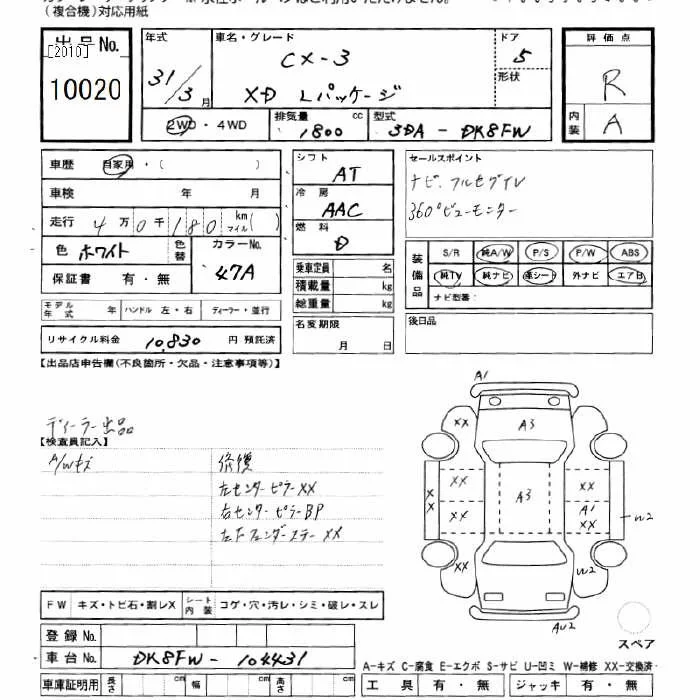 (複合機)対応用紙
出品No.
[2010]
10020
年式
31/3月
車名・グレード
CX-3
XD Lパッケージ
ドア
5
形状
評価点
R
内装
A
2WD・4WD
排気量
1800 cc
型式
3DA-DK8FW
車歴 自家用・( )
車検 年 月
走行 4万0千180 km マイル( )
色 ホワイト
色替
カラーNo.
47A
保証書 有・無
モデル年式 年 ハンドル 左・右 ディーラー・並行
リサイクル料金 10,830 円 預託済
シフト
AT
冷房
AAC
燃料
D
乗車定員 名
積載量 kg
総重量 kg
名変期限
月 日
セールスポイント
ナビ、フルセグTV
360°ビューモニター
装備品
S/R 純A/W P/S P/W ABS
純TV 純ナビ 革シート 外ナビ エアB
ナビ型番:
後日品
【出品店申告欄(不良箇所・欠品・注意事項等)】
ディーラー出品
【検査員記入】
A/Wキズ
修復
左センターピラーXX
右センターピラーBP
左Fフェンダーステー XX
A1
A3
XX
XX
XX XX
XX
A3
XX
A1
XX
W2
XX
W2
AU2
スペア
FW キズ・トビ石・割レX シート内装 コゲ・穴・汚レ・シミ・破レ・スレ
登録No.
車台No. DK8FW-104431
車庫証明用 長さ cm 幅 cm 高さ cm
A-キズ C-腐食 E-エクボ S-サビ U-凹ミ W-補修 XX-交換済
工具 有・無 ジャッキ 有・無